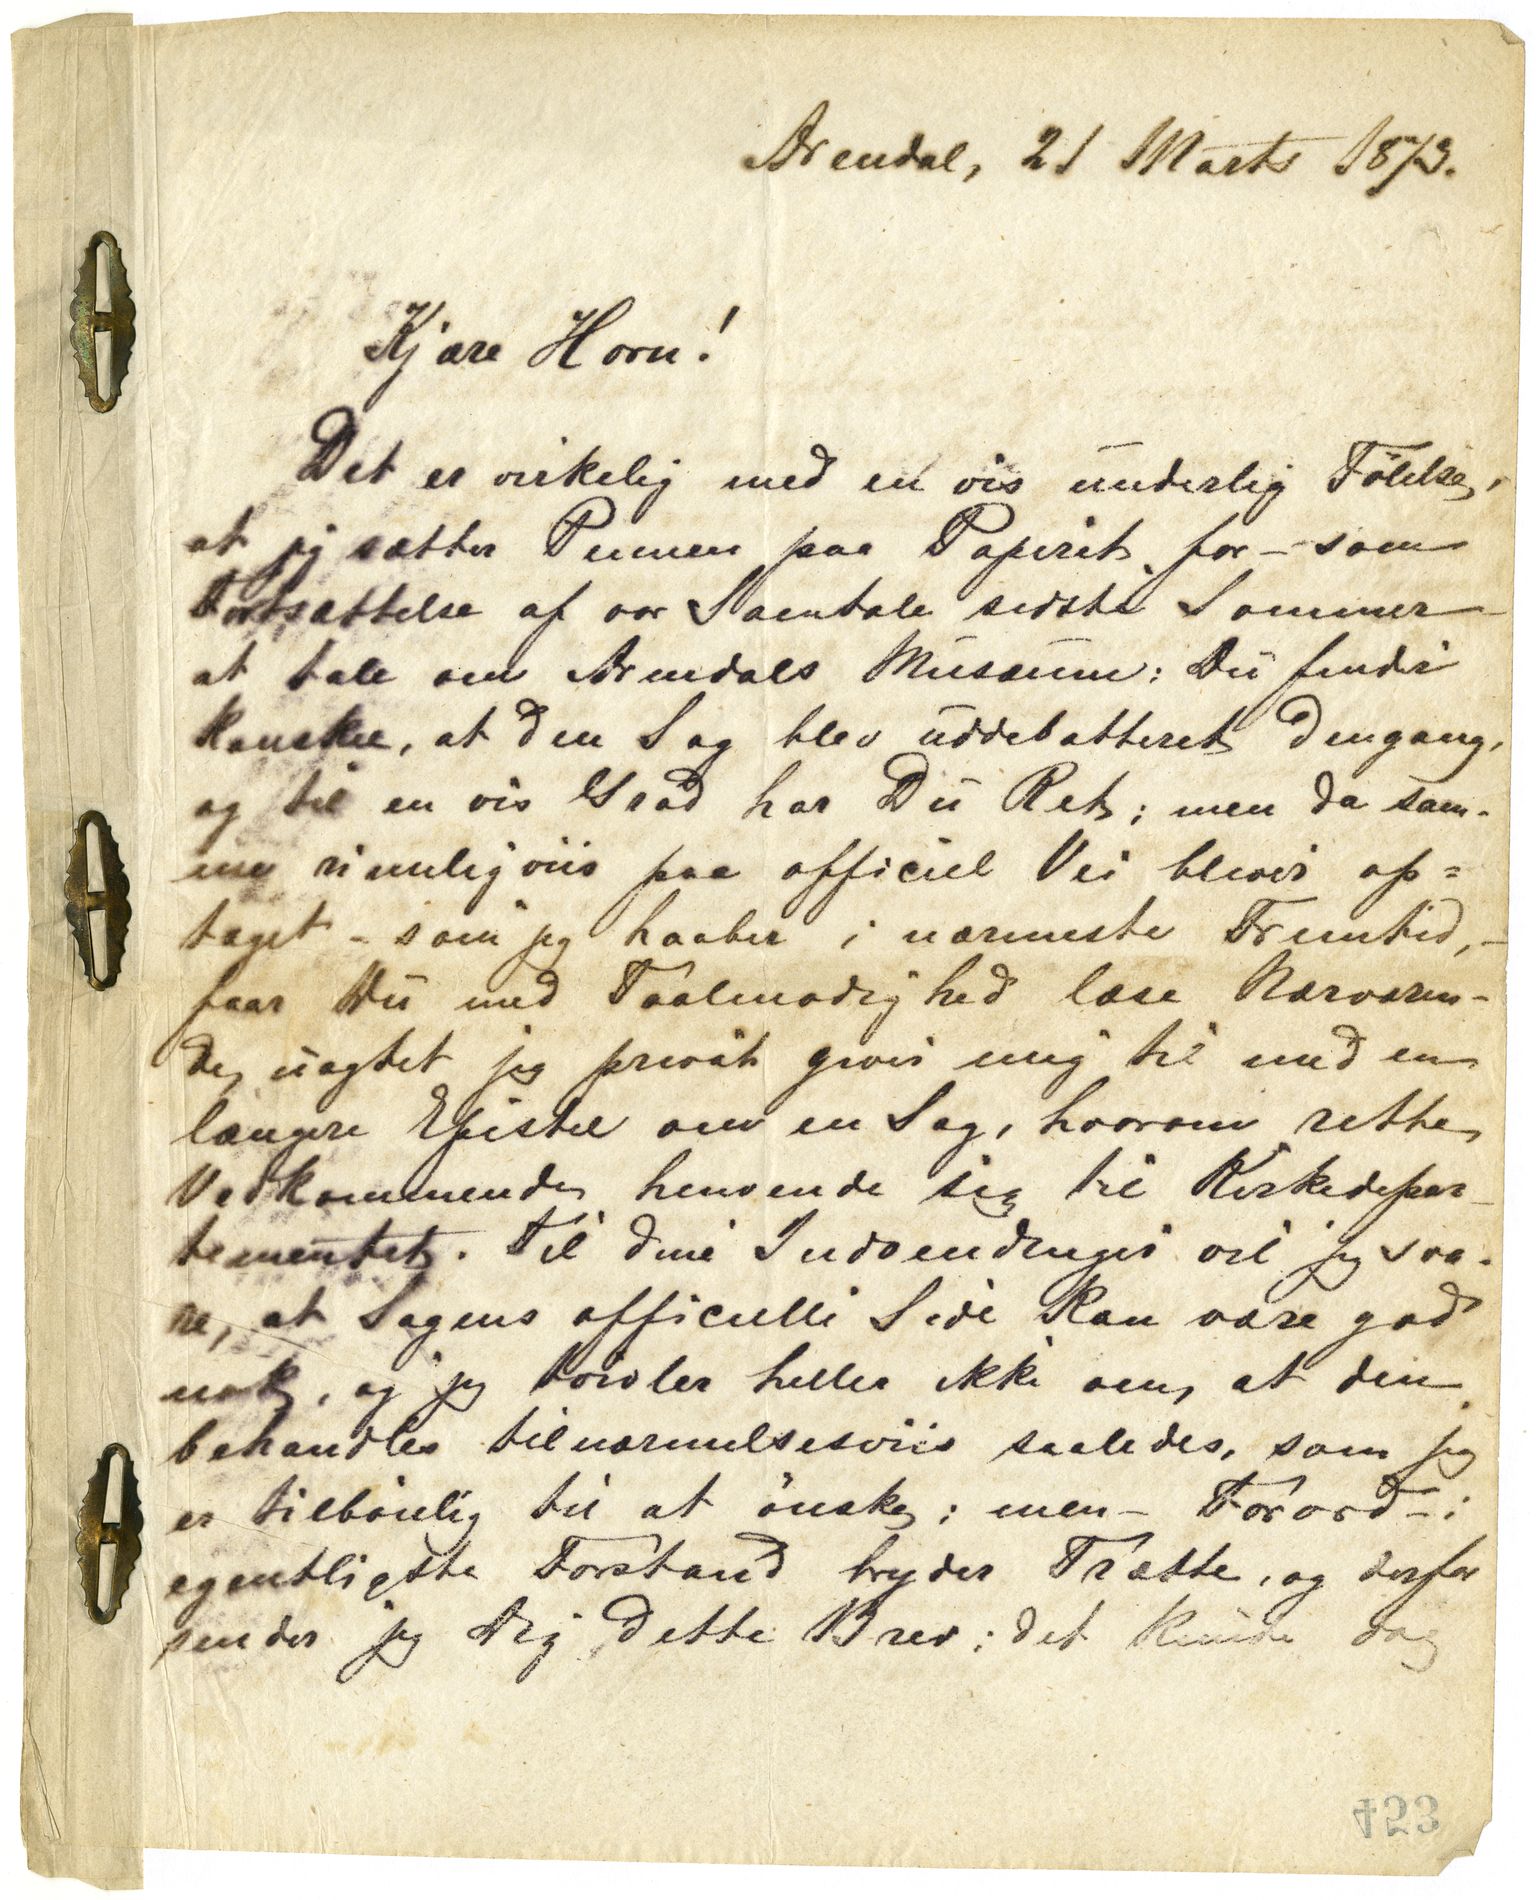 Arendal, 21 Marts 1873.
Kjære Horn!
Det er virkelig med en vis underlig Fölelse,
at jeg sætter Pennen paa Papiret for – som
Fortsættelse af vor Samtale sidste Sommer –
at tale om Arendals Musæum: Du finder
kanskee, at den Sag blev uddebatteret dengang,
og til en vis Grad har Du Ret; men da sam-
me rimeligviis paa officiel Vei bliver op=
taget – som jeg haaber i nærmeste Fremtid, –
faar Du med Taalmodighed læse Nærværen-
de, uagtet jeg privat giver mig til med en
længere Epistel om en Sag, hvorom rette
Vedkommende henvende sig til Kirkedepar-
tementet. Til dine Indvendinger vil jeg sva-
re, at Sagens officielle Side kan være god
nok, og jeg tvivler heller ikke om, at den
behandles tilnærmelsesviis saaledes, som jeg
er tilböielig til at önske; men – Forord – i
egentligste Forstand bryder Trætte, og derfor
sender jeg Dig dette Brev; det kunde dog
423